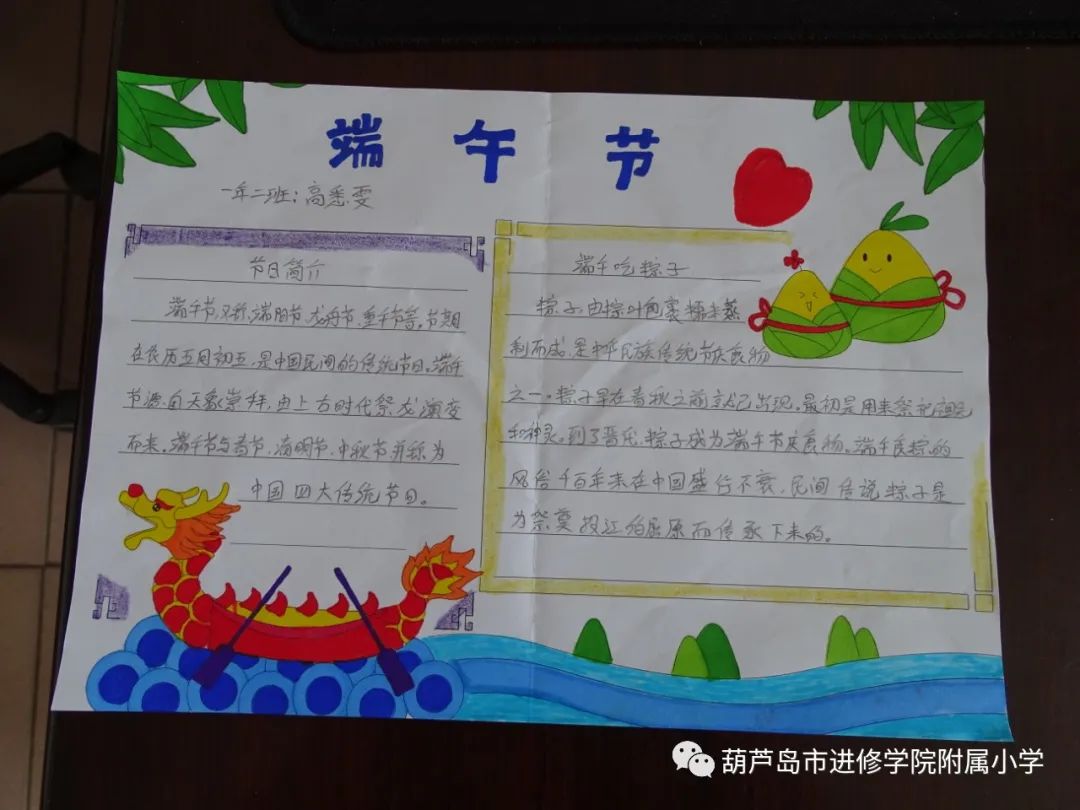 端午节
一年二班：高悉雯
节日简介
端午节，又称端阳节、龙舟节、重午节等。节期
在农历五月初五，是中国民间的传统节日。端午
节源自天象崇拜，由上古时代祭龙演变
而来。端午节与春节、清明节、中秋节并称为
中国四大传统节日。
端午吃粽子
粽子由粽叶包裹糯米蒸
制而成，是中华民族传统节庆食物
之一。粽子早在春秋之前就已出现，最初是用来祭祀祖先
和神灵。到了晋代，粽子成为端午节庆食物。端午食粽的
风俗千百年来在中国盛行不衰，民间传说粽子是
为祭奠投江的屈原而传承下来的。
葫芦岛市进修学院附属小学